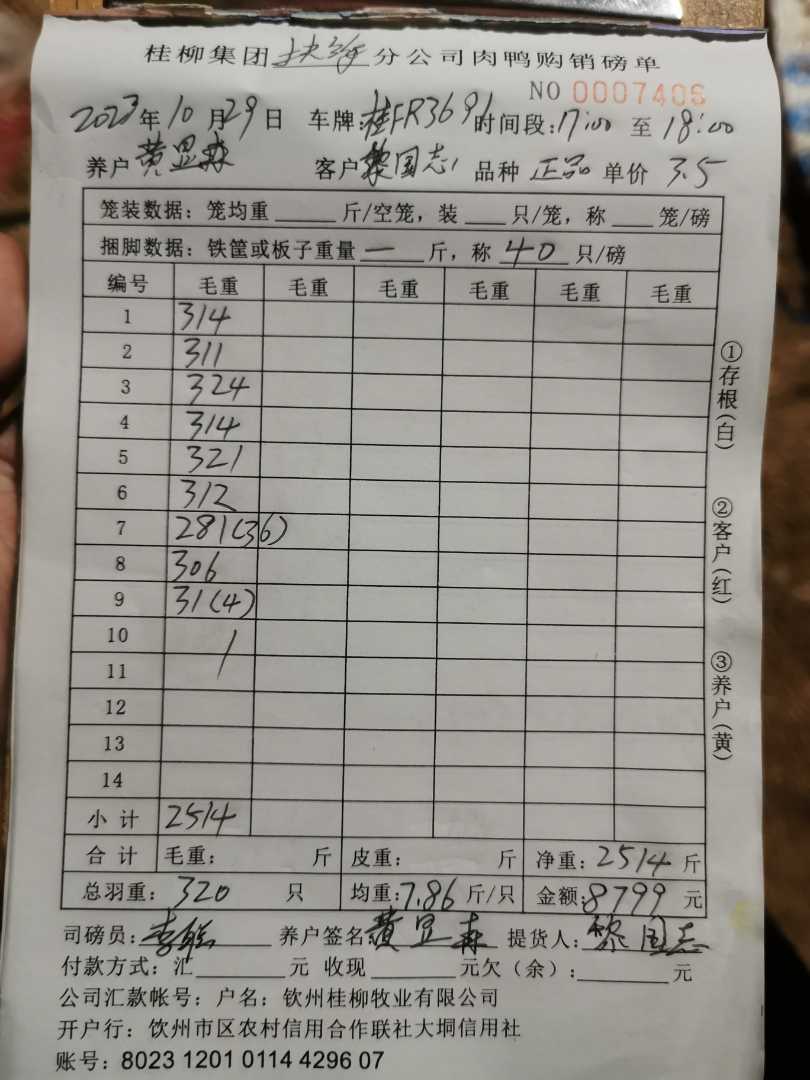 桂柳集团扶海分公司肉鸭购销磅单
NO 0007406
2023年10月29日 车牌:桂FR3691 时间段:17:00 至 18:00
养户 黄显森 客户 黎国志 品种 正品 单价 3.5
笼装数据:笼均重____斤/空笼,装___只/笼,称___笼/磅
捆脚数据:铁筐或板子重量 一 斤,称 40 只/磅
编号 毛重 毛重 毛重 毛重 毛重 毛重
1 314
2 311
3 324
4 314
5 321
6 312
7 281(36)
8 306
9 31(4)
10
11
12
13
14
小计 2514
合计 毛重: 斤 皮重: 斤 净重:2514 斤
总羽重:320 只 均重:7.86 斤/只 金额:8799 元
司磅员: 养户签名:黄显森 提货人:黎国志
付款方式:汇______元 收现______元欠(余):______元
公司汇款帐号:户名:钦州桂柳牧业有限公司
开户行:饮州市区农村信用合作联社大垌信用社
账号:8023 1201 0114 4296 07
①存根(白)
②客户(红)
③养户(黄)